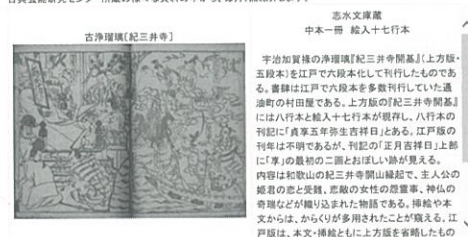 古浄瑠璃[紀三井寺]
志水文庫蔵
中本一冊 絵入十七行本
宇治加賀掾の浄瑠璃『紀三井寺開基』(上方版・
五段本)を江戸で六段本化して刊行したものであ
る。書肆は江戸で六段本を多数刊行していた通
油町の村田屋である。上方版の『紀三井寺開基』
には八行本と絵入十七行本が現存し、八行本の
刊記に「貞享五年弥生吉祥日」とある。江戸版の
刊年は不明であるが、刊記の「正月吉祥日」上部
に「享」の最初の二画とおぼしい跡が見える。
内容は和歌山の紀三井寺開山縁起で、主人公の
姫君の恋と受難、悲敵の女性の怨霊事、神仏の
奇瑞などが織り込まれた物語である。挿絵や本
文からは、からくりが多用されたことが窺える。江
戸版は、本文・挿絵ともに上方版を省略したもの